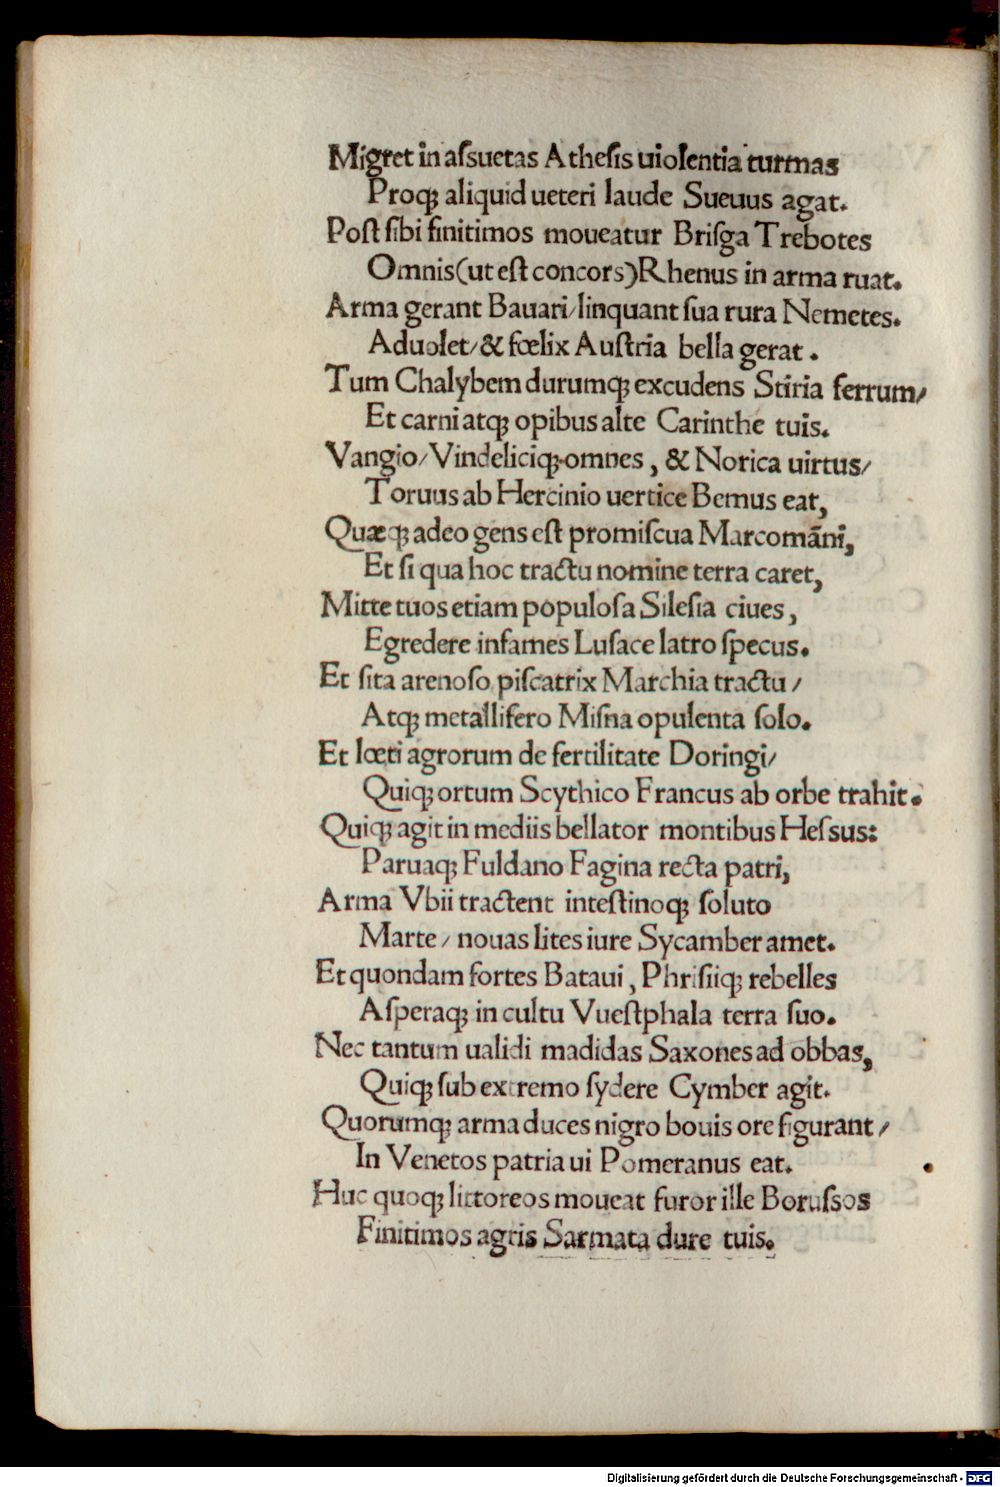 Migret in aſsuetas Atheſis uiolentia turmas
Proqꝫ aliquid ueteri laude Sueuus agat.
Poſt ſibi finitimos moueatur Briſga Trebotes
Omnis(ut eſt concors)Rhenus in arma ruat.
Arma gerant Bauari/linquant ſua rura Nemetes.
Aduolet/& fœlix Auſtria bella gerat .
Tum Chalybem durumqꝫ excudens Stiria ferrum/
Et carni atqꝫ opibus alte Carinthe tuis.
Vangio/Vindeliciqꝫ omnes , & Norica uirtus/
Toruus ab Hercinio uertice Bemus eat,
Quæqꝫ adeo gens eſt promiſcua Marcomãni,
Et ſi qua hoc tractu nomine terra caret,
Mitte tuos etiam populoſa Sileſia ciues ,
Egredere infames Luſace latro ſpecus.
Et ſita arenoſo piſcatrix Marchia tractu /
Atqꝫ metallifero Miſna opulenta ſolo.
Et lœti agrorum de fertilitate Doringi/
Quiqꝫ ortum Scythico Francus ab orbe trahit.
Quiqꝫ agit in mediis bellator montibus Heſsus:
Paruaqꝫ Fuldano Fagina recta patri,
Arma Vbii tractent inteſtinoqꝫ ſoluto
Marte / nouas lites iure Sycamber amet.
Et quondam fortes Bataui , Phriſiiqꝫ rebelles
Aſperaqꝫ in cultu Vueſtphala terra ſuo.
Nec tantum ualidi madidas Saxones ad obbas,
Quiqꝫ ſub extremo ſydere Cymber agit.
Quorumqꝫ arma duces nigro bouis ore figurant /
In Venetos patria ui Pomeranus eat.
Huc quoqꝫ littoreos moueat furor ille Boruſsos
Finitimos agris Sarmata dure tuis.
Digitalisierung gefördert durch die Deutsche Forschungsgemeinschaft - DFG